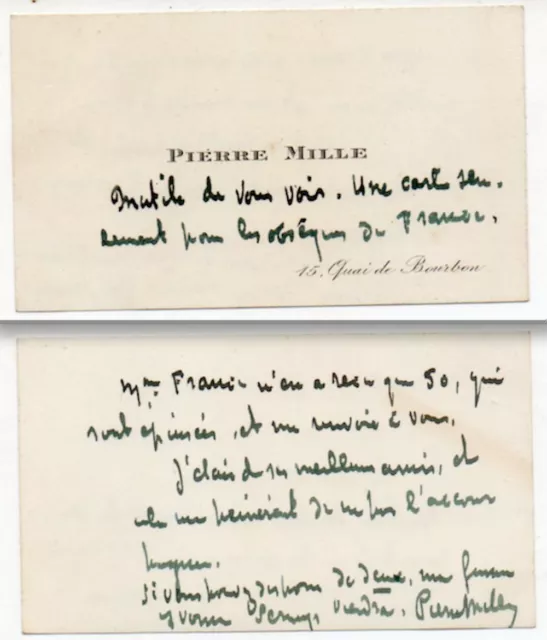 PIERRE MILLE
Inutile de vous voir. Une carte seu-
lement pour les obsèques de France.
15, Quai de Bourbon
Mme France n'en a reçu que 50, qui
sont épuisées, et me renvoie à vous.
J'étais de ses meilleurs amis, et
cela me peinerait de ne pas l'accom
pagner.
Si vous pouvez disposer de deux, ma femme
Yvonne Serruys viendra. Pierre Mille